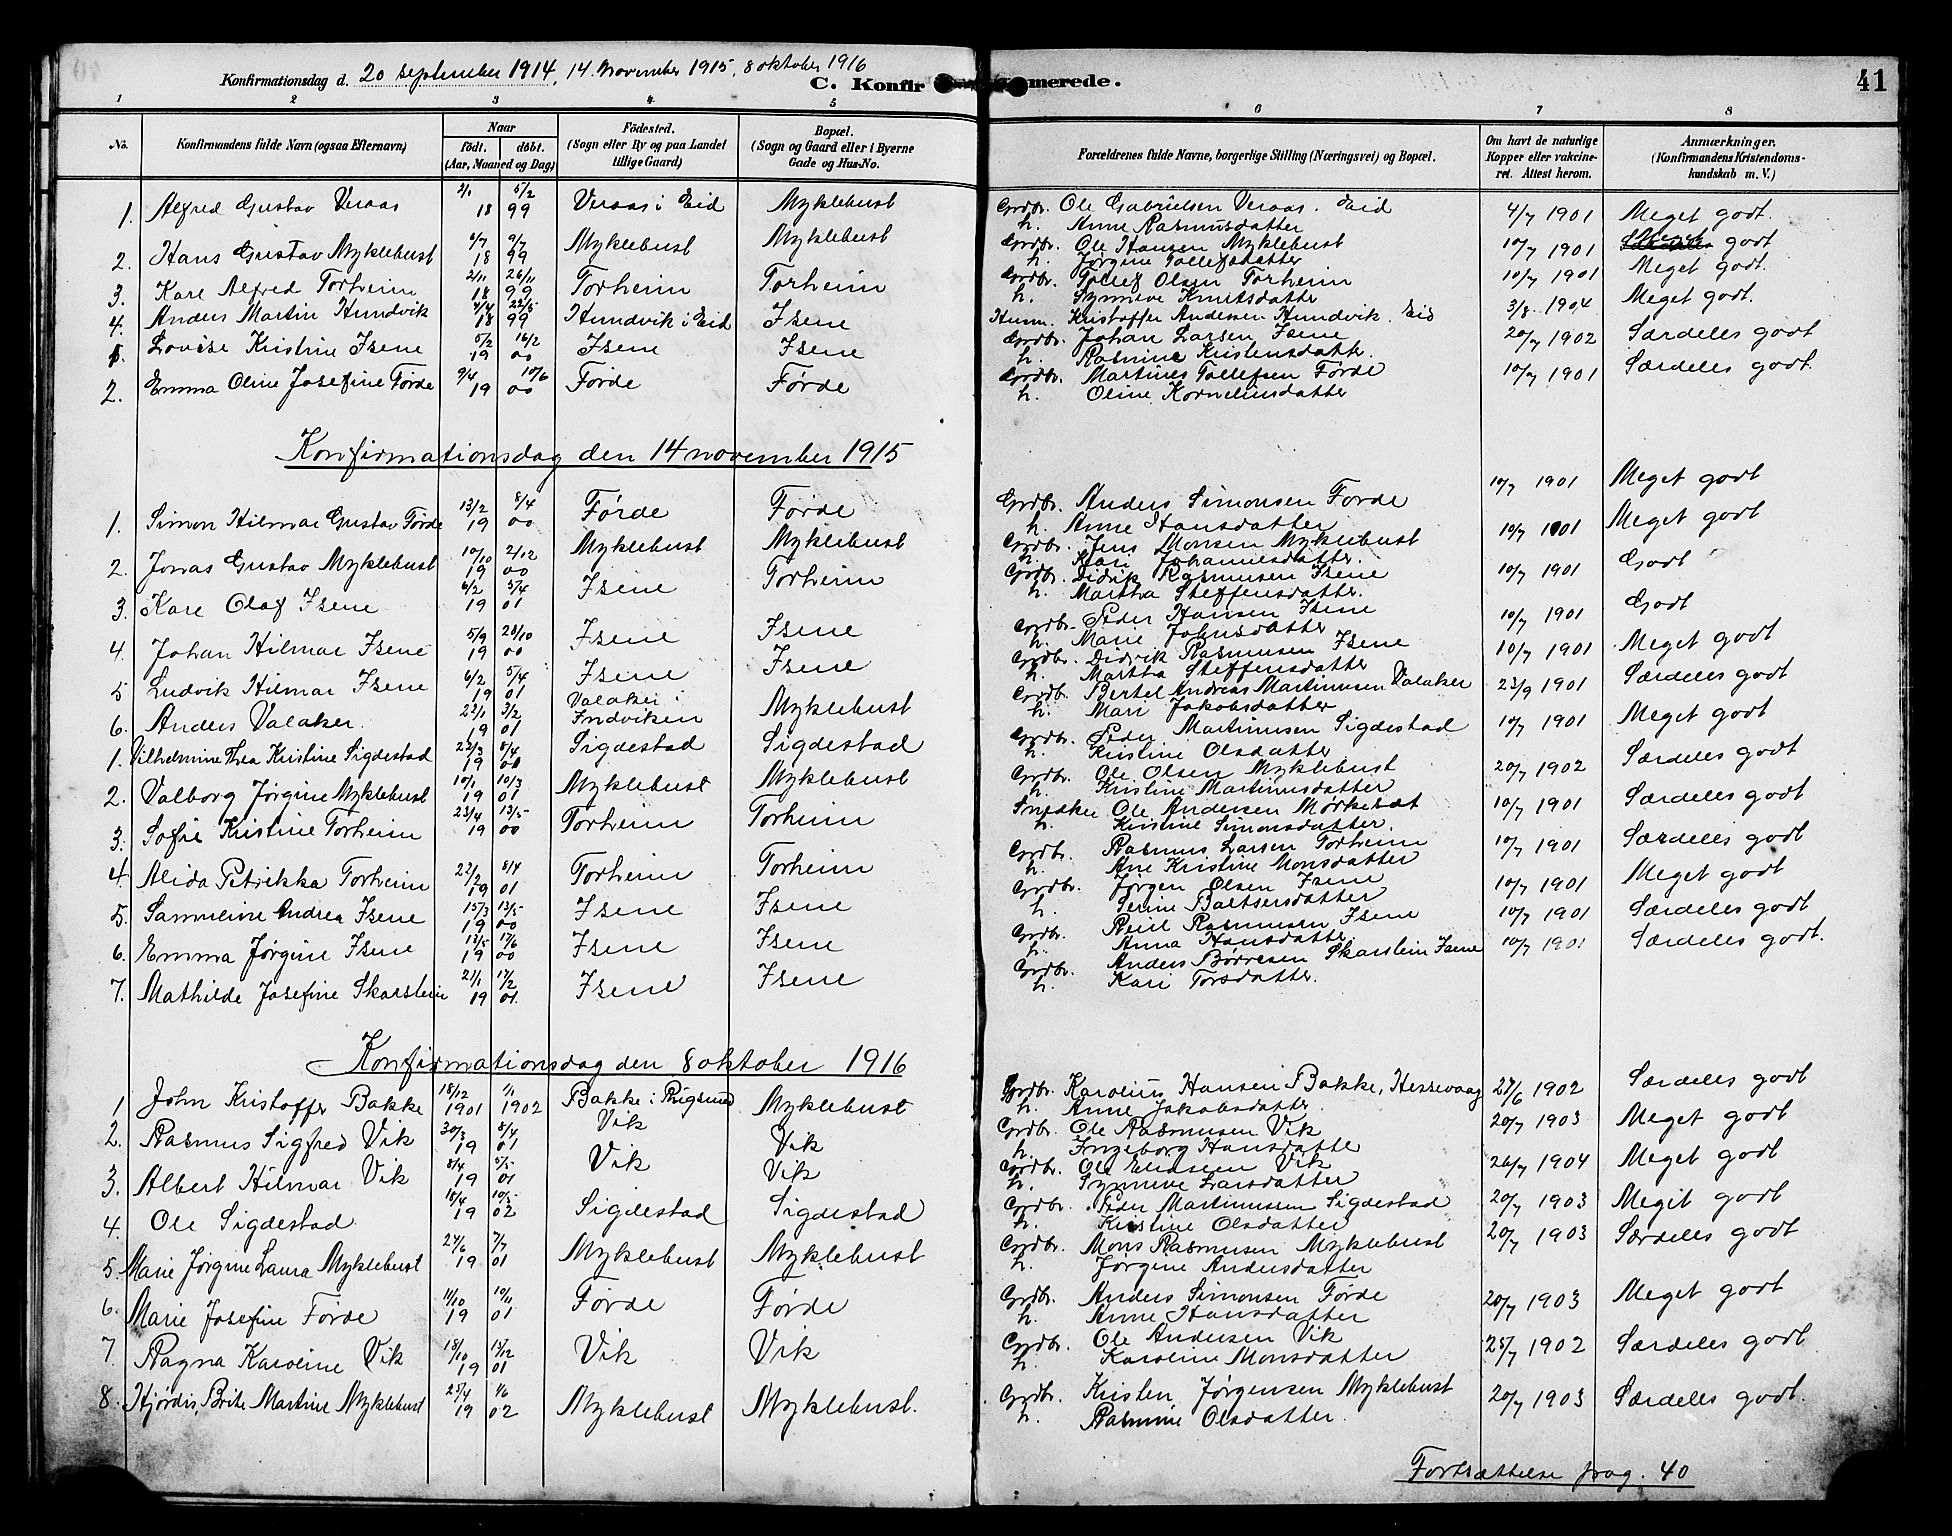 Konfirmationsdag d. 20 september 1914, 14. november 1915, 8 oktober 1916
C. Konfirmerede. 41
1 2 3 4 5 6 7 8
No. Konfirmandens fulde Navn (ogsaa Efternavn) Naar födt. döbt. (Aar, Maaned og Dag) Födested. (Sogn eller By og paa Landet tillige Gaard) Bopæl. (Sogn og Gaard eller i Byerne Gade og Hus-No. Forældrenes fulde Navne, borgerlige Stilling (Næringsvei) og Bopæl. Om havt de naturlige Kopper eller vakcineret. Attest herom. Anmærkninger. (Konfirmandens Kristendomskundskab m. V.)
1. Alfred Gustav Veraas 2/1 18 5/2 99 Veraas i Eid Myklebust Grdbr. Ole Gabrielsen Veraas. Eid h. Anne Rasmusdatter 4/7 1901 Meget godt.
2. Hans Gustav Myklebust 6/7 18 9/7 99 Myklebust Myklebust Grdbr. Ole Hansen Myklebust h. Jørgine Tollefsdatter 10/7 1901 Meget godt
3. Kare Alfred Torheim 2/11 18 26/11 99 Torheim Torheim Grdbr. Tollef Olsen Torheim h. Synneve Knutsdatter 10/7 1901 Meget godt.
4. Anders Martin Hundvik 4/4 18 22/5 99 Hundvik i Eid Isene Husm. Kristoffer Andersen Hundvik. Eid 3/8 1904 Meget godt.
1. Lovise Kristine Isene 5/2 19 16/2 00 Isene Isene Grdbr. Johan Larsen Isene h. Rasmine Kristensdatt. 20/7 1902 Særdeles godt
2. Emma Oline Josefine Førde 9/4 19 10/6 00 Førde Førde Grdbr. Martines Tollefsen Førde h. Oline Korneliusdatter 10/7 1901 Særdeles godt.
Konfirmationsdag den 14 november 1915
1. Simon Hilmar Gustav Førde 13/2 19 8/4 00 Førde Førde Grdbr. Anders Simonsen Førde h. Anne Hansdatter 10/7 1901 Meget godt
2. Jonas Gustav Myklebust 10/10 19 2/12 00 Myklebust Myklebust Grdbr. Jens Monsen Myklebust h. Kari Johannesdatter. 10/7 1901 Meget godt
3. Kare Olaf Isene 6/2 19 5/4 01 Isene Torheim Grdbr. Didrik Rasmusen Isene h. Martha Steffensdatter. 10/7 1901 Godt
4. Johan Hilmar Isene 5/9 19 28/10 00 Isene Isene Grdbr. Peder Hansen Isene h. Marie Johnsdatter 10/7 1901 Godt
5 Ludvik Hilmar Isene 6/2 19 5/4 01 Isene Isene Grdbr. Didrik Rasmusen Isene h. Martha Steffensdatter 10/7 1901 Meget godt
6. Anders Valaker 23/1 19 3/2 01 Valaker i Indviken Myklebust Grdb. Bertel Andreas Martinusen Valaker h. Mari Jakobsdatter 23/9 1901 Særdeles godt
1. Vilhelmine Thea Kristine Sigdestad 23/3 19 8/4 00 Sigdestad Sigdestad Grdbr. Peder Martinusen Sigdestad h. Kristine Olsdatter 10/7 1901 Meget godt
2. Valborg Jørgine Myklebust 10/1 19 10/3 01 Myklebust Myklebust Grdbr. Ole Olsen Myklebust h. Kristine Martinusdatter 20/7 1902 Særdeles godt
3. Sofie Kristine Torheim 23/4 19 13/5 00 Torheim Torheim Snedker Ole Andersen Mørkesæt h. Kristine Simonsdatter. 10/7 1901 Særdeles godt
4. Alida Petrikka Torheim 22/2 19 8/4 01 Torheim Torheim Grdbr. Rasmus Larsen Torheim h. Ane Kristine Monsdatter 10/7 1901 Særdeles godt
5. Samueline Andrea Isene 15/3 19 13/5 00 Isene Isene Grdbr. Jørgen Olsen Isene h. Serine Baltsersdatter 10/7 1901 Meget godt
6. Emma Jørgine Isene 13/5 19 17/6 00 Isene Isene Grdbr. Rasmusen Isene h. Anna Hansdatter. 10/7 1901 Særdeles godt
7. Mathilde Josefine Skarstein 21/1 19 17/2 01. Isene Isene Grdbr. Anders Børresen Skarstein Isene h. Kari Torsdatter. 10/7 1901 Særdeles godt.
Konfirmationsdag den 8 oktober 1916
1 John Kristoffer Bakke 18/12 1901 1/1 1902 Bakke i Myklebust Grdbr. Karolius Hansen Bakke, Hessevaag h. Anne Jakobsdatter. 27/6 1902 Særdeles godt
2. Rasmus Sigfred Vik 30/3 19 8/4 01 Vik Vik Grdbr. Ole Rasmusen Vik h. Ingeborg Hansdatte 20/7 1903 Meget godt
3. Albert Hilmar Vik 8/4 19 5/5 01 Vik Vik Grdbr. Ole Eliasen Vik h. Synneve Larsdatter 26/7 1904 Meget godt
4. Ole Sigdestad 18/4 19 10/5 02 Sigdestad Sigdestad Grdbr. Peder Martinusen Sigdestad h. Kristine Olsdatter 20/7 1903 Meget godt
5 Marie Jørgine Laura Myklebust 24/6 19 7/7 01 Myklebust Myklebust Grdbr. Mons Rasmusen Myklebust h. Jørgine Andersdatter 20/7 1903 Særdeles godt
6. Marie Josefine Førde 11/10 19 10/11 01 Førde Førde Grdbr. Anders Simonsen Førde h. Anne Hansdatter 20/7 1903 Meget godt
7. Ragna Karoline Vik 18/10 19 15/12 01 Vik Vik Grdbr. Ole Andersen Vik h. Karoline Monsdatter 25/7 1902 Særdeles godt
8. Hjørdis Brite Martine Myklebust 25/4 19 1/6 02 Myklebust Myklebust. Grdbr. Kristen Jørgensen Myklebust h. Rasmine Olsdatter. 20/7 1903 Særdeles godt.
Fortsættelse pag. 40